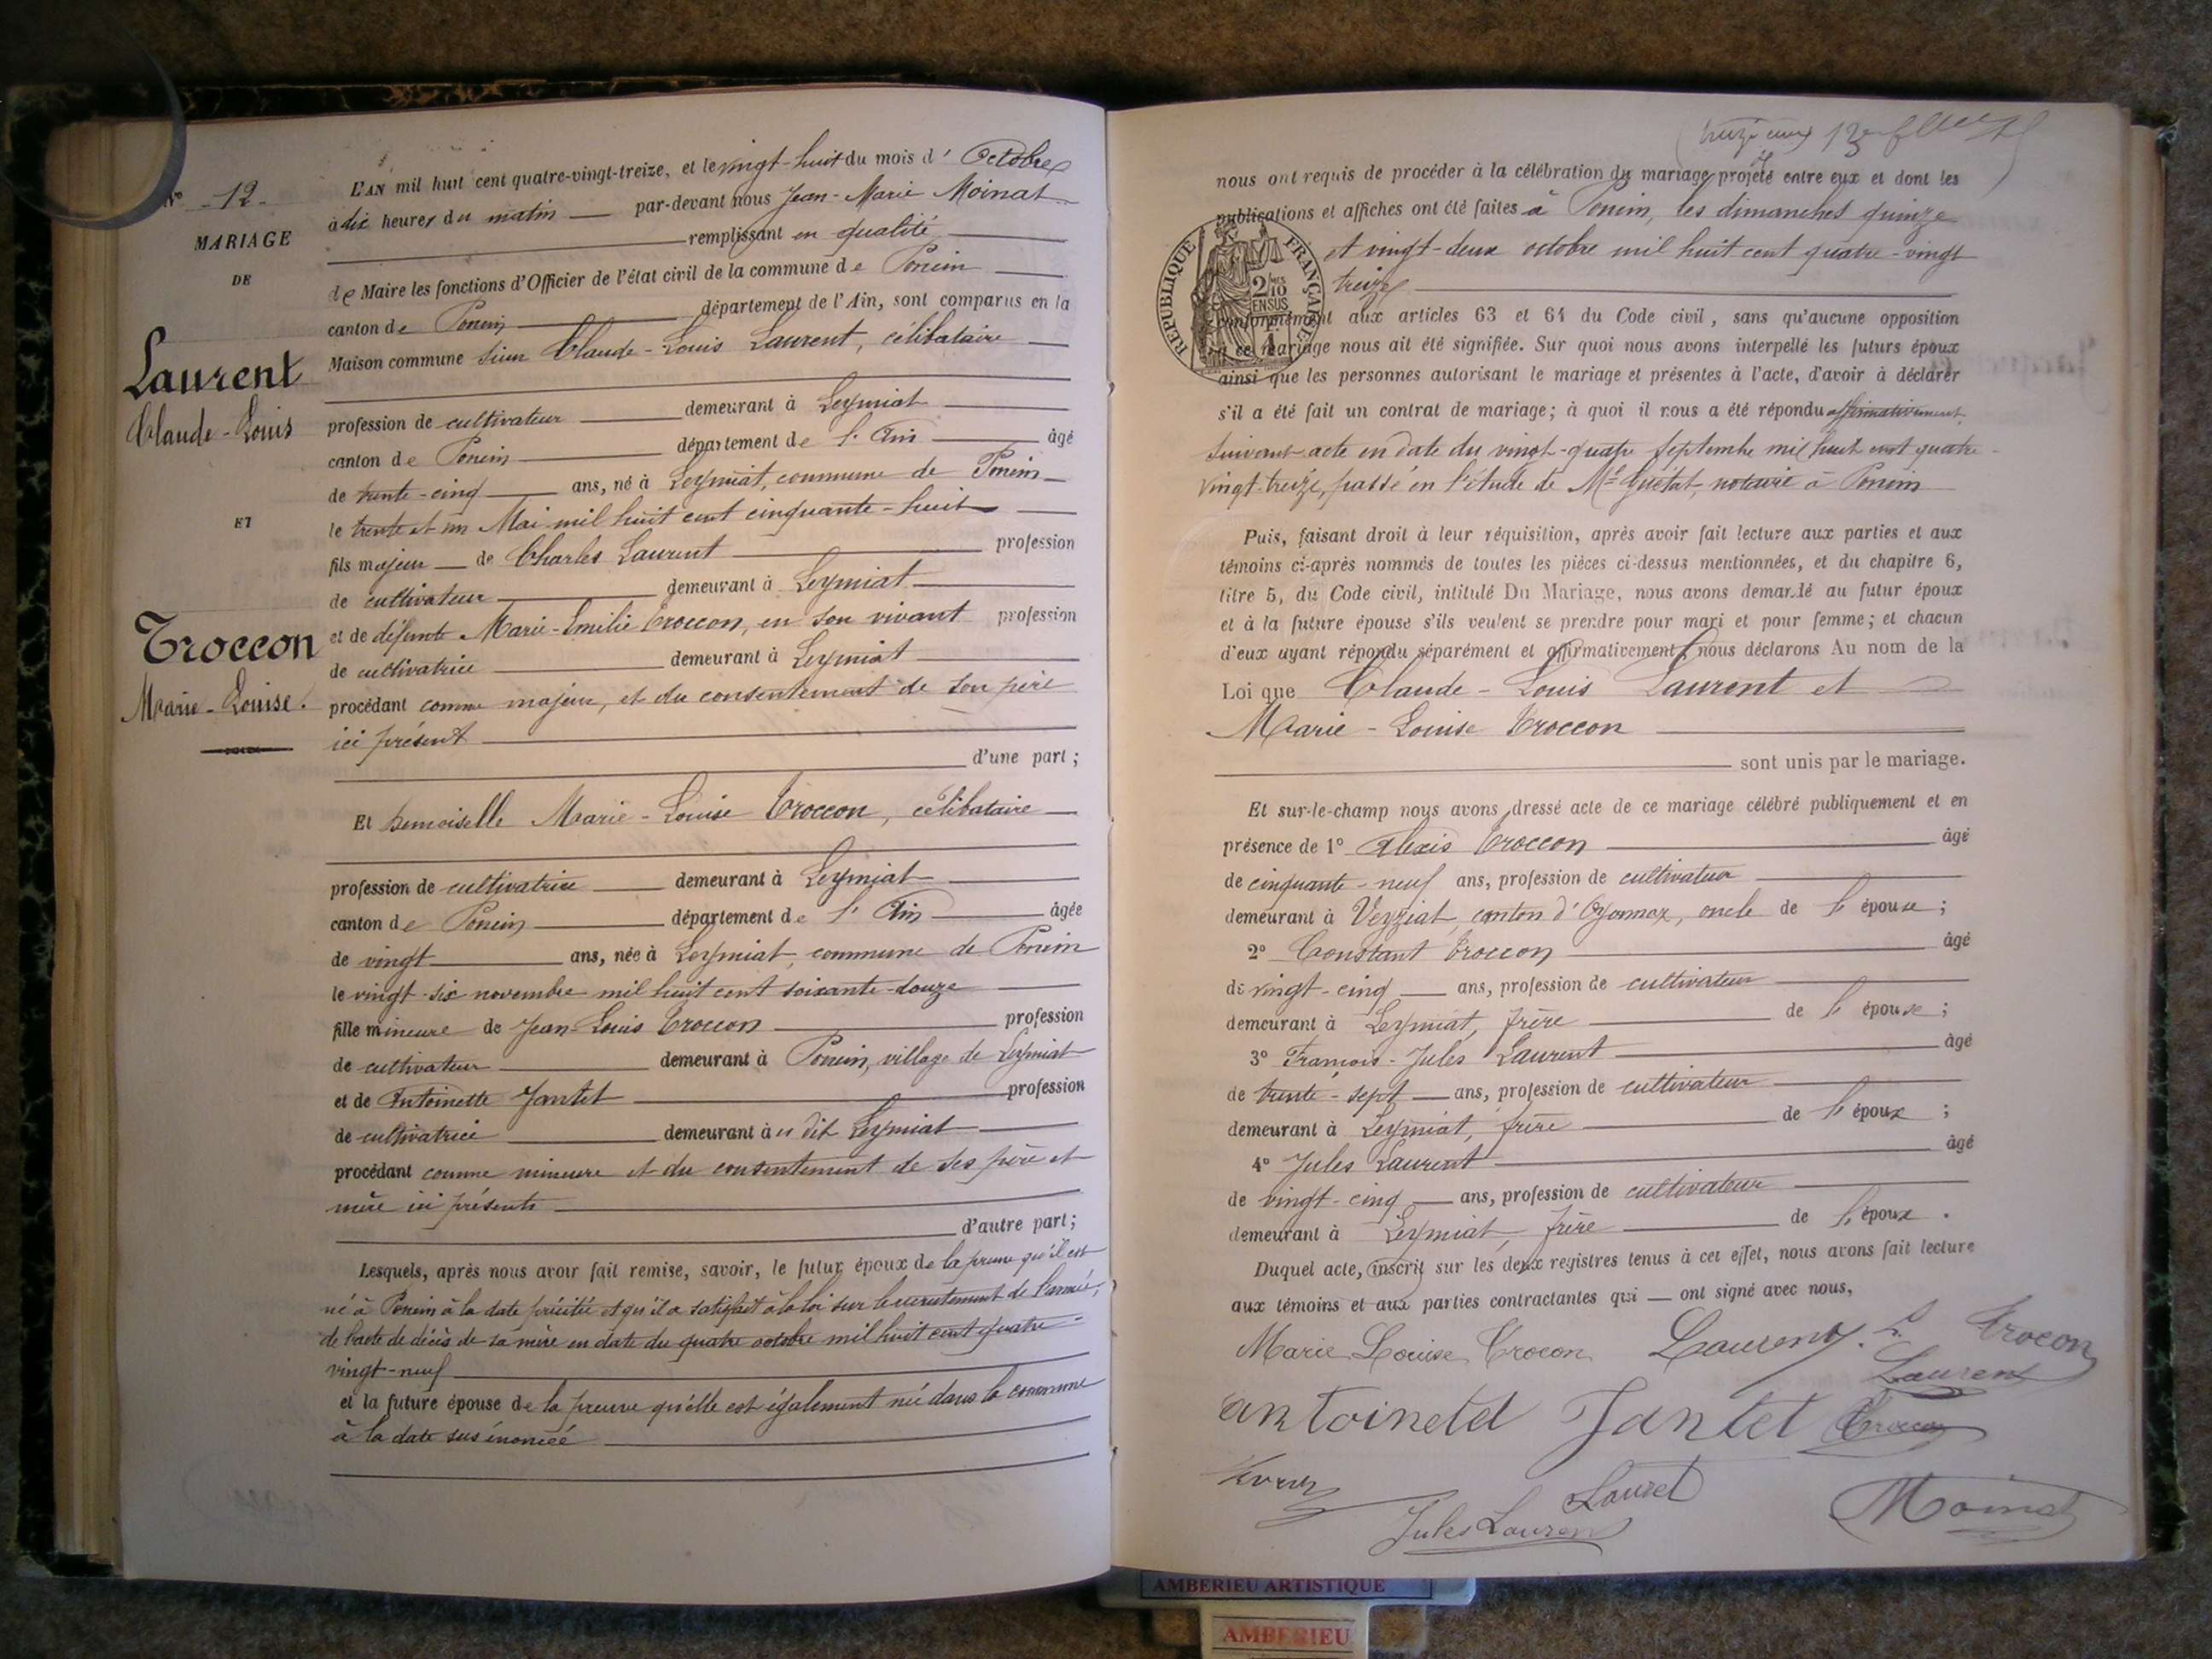 N° 12
MARIAGE
DE
Laurent
Claude-Louis
ET
Troccon
Marie-Louise.
L'AN mil huit cent quatre-vingt-treize, et le vingt-huit du mois d' Octobre
à dix heures du matin par-devant nous Jean-Marie Moinat
remplissant en qualité
de Maire les fonctions d'Officier de l'état civil de la commune de Poncin
canton de Poncin département de l'Ain, sont comparus en la
Maison commune sieur Claude-Louis Laurent, célibataire
profession de cultivateur demeurant à Leymiat
canton de Poncin département de l'Ain âgé
de trente-cinq ans, né à Leymiat, commune de Poncin
le trente et un Mai mil huit cent cinquante-huit
fils majeur de Charles Laurent profession
de cultivateur demeurant à Leymiat
et de défunte Marie-Emilie Troccon, en son vivant profession
de cultivatrice demeurant à Leymiat
procédant comme majeur, et du consentement de son père
ici présent
d'une part ;
Et demoiselle Marie-Louise Troccon, célibataire
profession de cultivatrice demeurant à Leymiat
canton de Poncin département de l'Ain âgée
de vingt ans, née à Leymiat, commune de Poncin
le vingt-six novembre mil huit cent soixante-douze
fille mineure de Jean-Louis Troccon profession
de cultivateur demeurant à Poncin, village de Leymiat
et de Antoinette Jantet profession
de cultivatrice demeurant à u dit Leymiat
procédant comme mineure et du consentement de ses père et
mère ici présents
d'autre part ;
Lesquels, après nous avoir fait remise, savoir, le futur époux de la preuve qu'il est
né à Poncin à la date précitée et qu'il a satisfait à la loi sur le recrutement de l'armée,
de l'acte de décès de sa mère en date du quatre octobre mil huit cent quatre-
vingt-neuf
et la future épouse de la preuve qu'elle est également née dans la commune
à la date sus énoncée
nous ont requis de procéder à la célébration du mariage projeté entre eux et dont les
publications et affiches ont été faites à Poncin, les dimanches quinze
et vingt-deux octobre mil huit cent quatre-vingt
treize
RÉPUBLIQUE FRANÇAISE
2/10
EN SUS
conformément aux articles 63 et 64 du Code civil, sans qu'aucune opposition
à ce mariage nous ait été signifiée. Sur quoi nous avons interpellé les futurs époux
ainsi que les personnes autorisant le mariage et présentes à l'acte, d'avoir à déclarer
s'il a été fait un contrat de mariage; à quoi il nous a été répondu affirmativement,
suivant acte en date du vingt-quatre septembre mil huit cent quatre-
vingt-treize, passé en l'étude de Me Guétat, notaire à Poncin
Puis, faisant droit à leur réquisition, après avoir fait lecture aux parties et aux
témoins ci-après nommés de toutes les pièces ci-dessus mentionnées, et du chapitre 6,
titre 5, du Code civil, intitulé Du Mariage, nous avons demandé au futur époux
et à la future épouse s'ils veulent se prendre pour mari et pour femme; et chacun
d'eux ayant répondu séparément et affirmativement, nous déclarons Au nom de la
Loi que Claude-Louis Laurent et
Marie-Louise Troccon
sont unis par le mariage.
Et sur-le-champ nous avons dressé acte de ce mariage célébré publiquement et en
présence de 1° Alexis Troccon âgé
de cinquante-neuf ans, profession de cultivateur
demeurant à Veyziat, canton d'Oyonnax, oncle de l'épouse ;
2° Constant Troccon âgé
de vingt-cinq ans, profession de cultivateur
demeurant à Leymiat, frère de l'épouse ;
3° François-Jules Laurent âgé
de trente-sept ans, profession de cultivateur
demeurant à Leymiat, frère de l'époux ;
4° Jules Laurent âgé
de vingt-cinq ans, profession de cultivateur
demeurant à Leymiat, frère de l'époux .
Duquel acte, inscrit sur les deux registres tenus à cet effet, nous avons fait lecture
aux témoins et aux parties contractantes qui ont signé avec nous,
Marie Louise Trocon Laurent L. Trocon
Laurent
antoineta Jantet Troccon
Lauret
Jules Lauren Moinat
AMBERIEU ARTISTIQUE
AMBERIEU